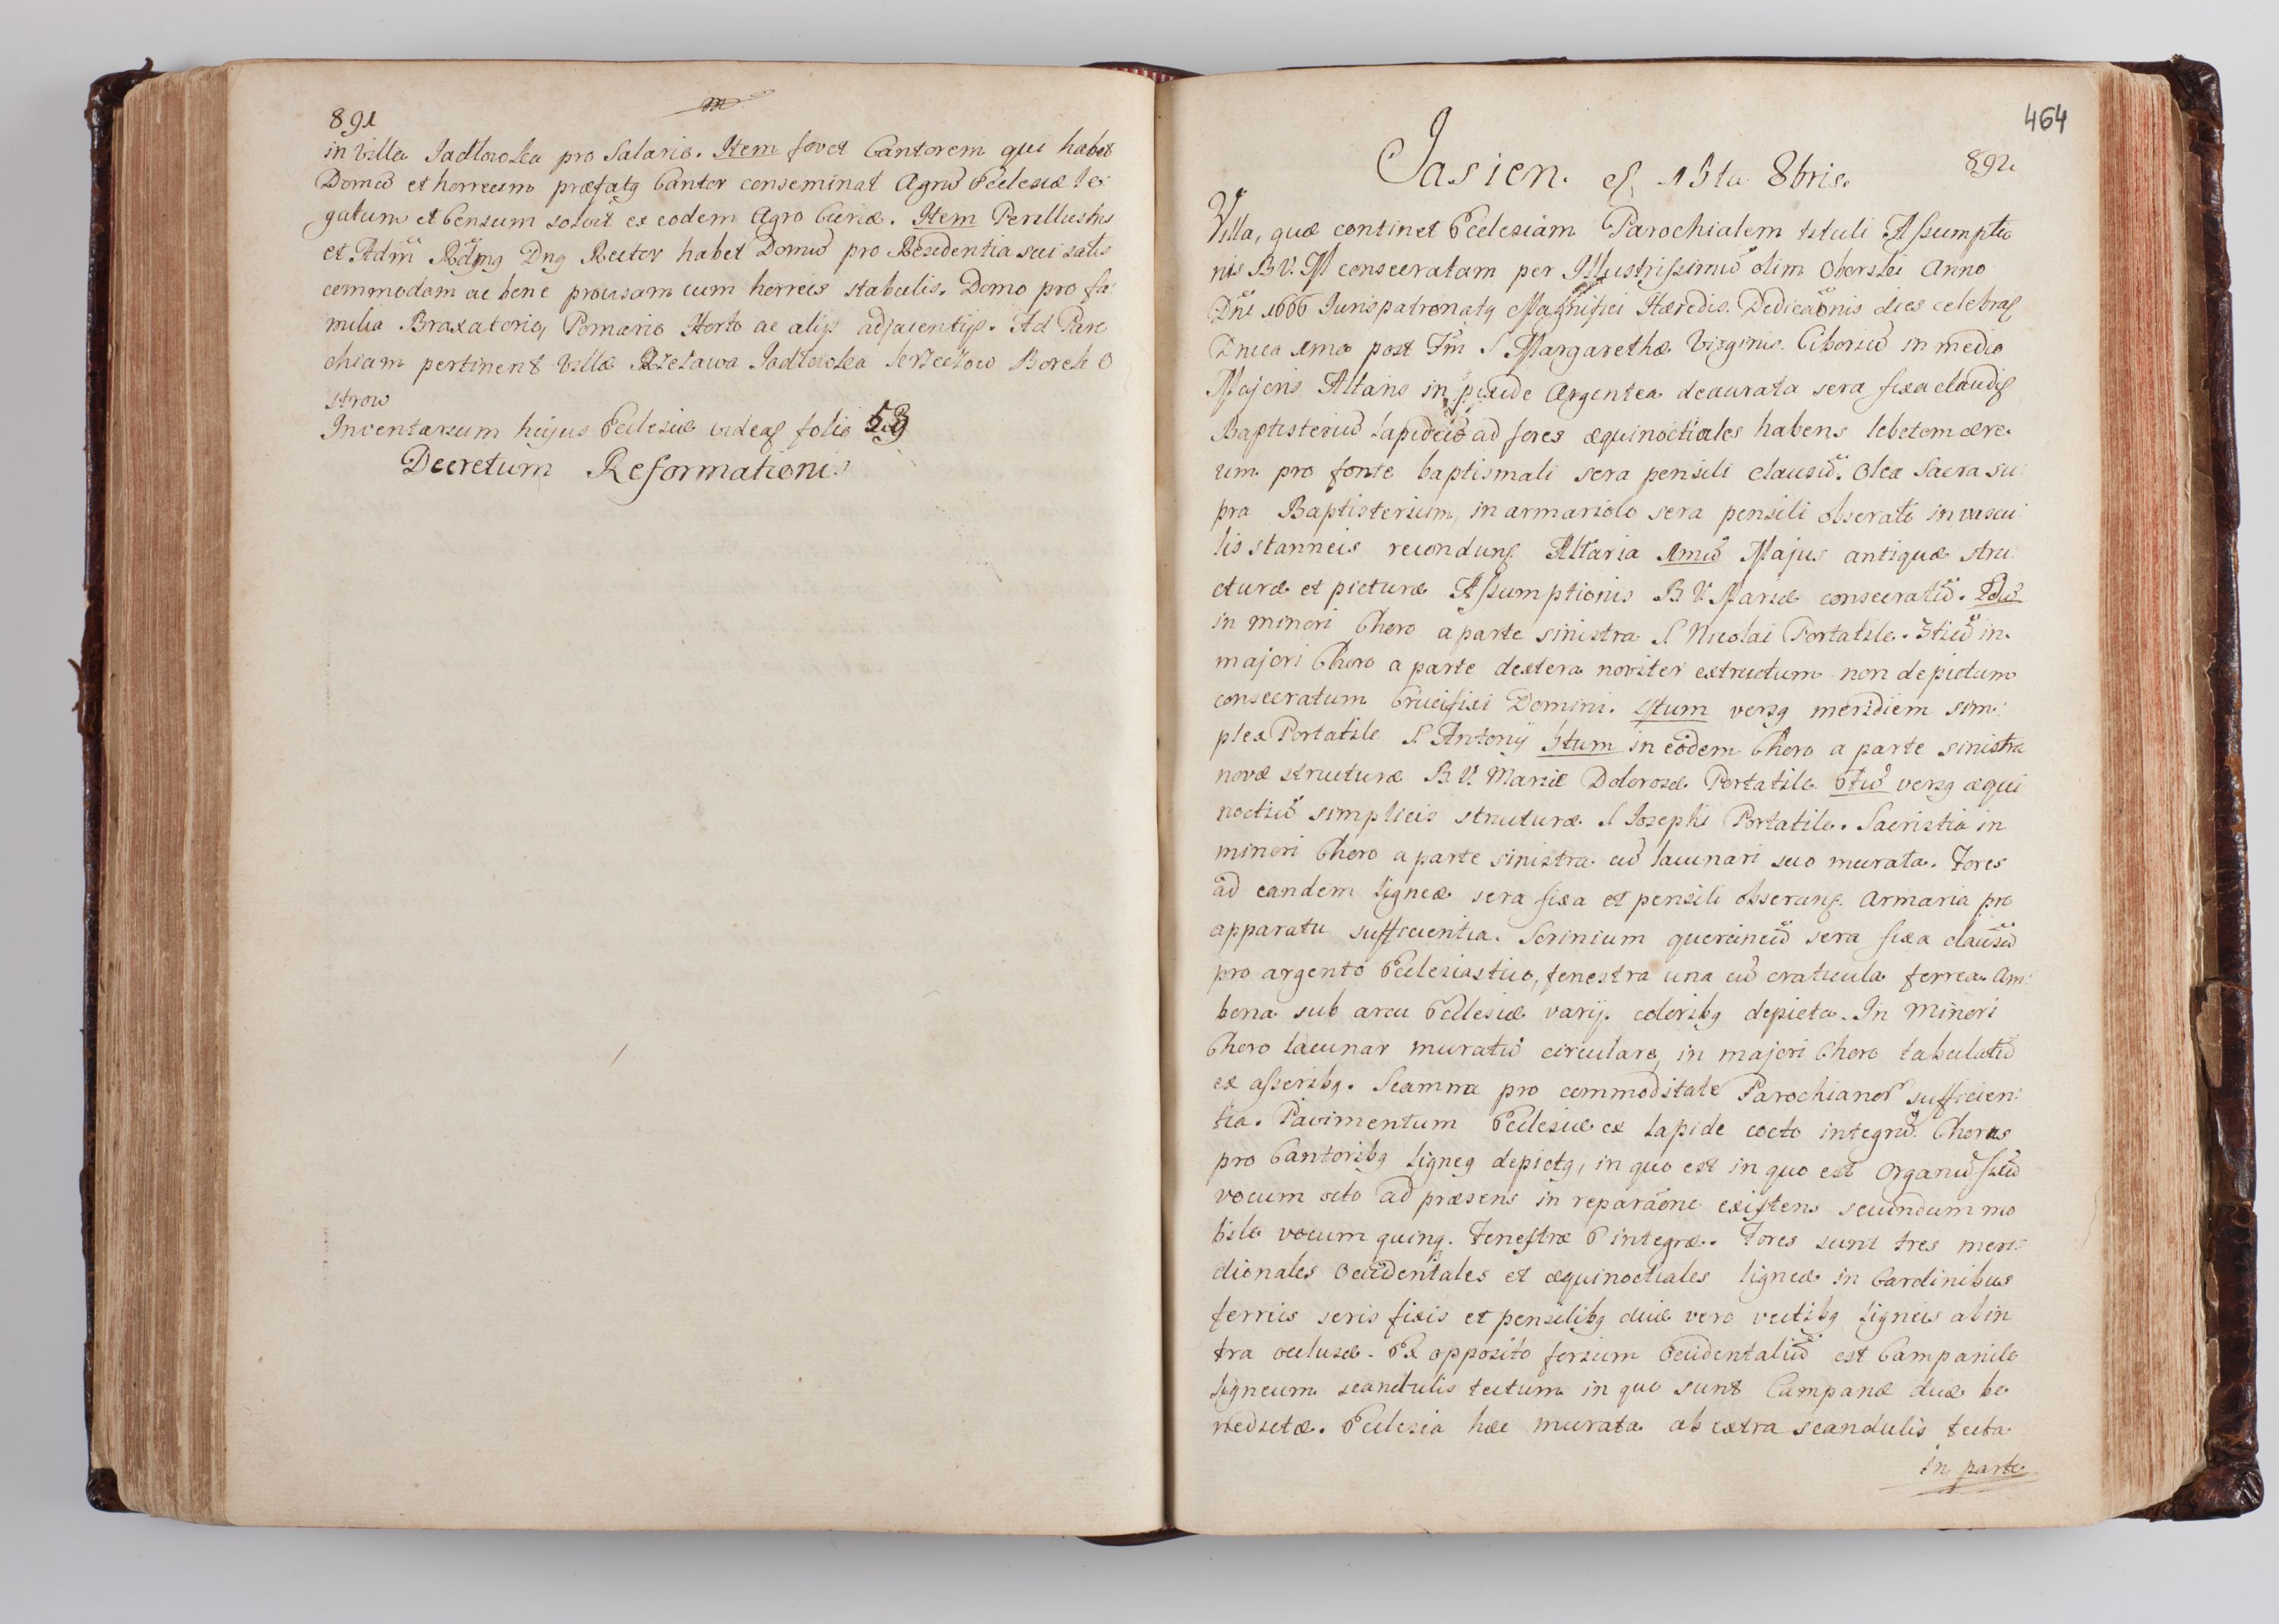 891
in Villa Jadlowka pro Salario. Item fovet Cantorem qui habet
Domū et horreum præfatq Cantor conseminat Agrū Ecclesiæ le
gatum et Censum solvit ex eodem Agro Curiæ. Item Perillustris
et Adm̃ Rdm̃q Dnq Rector habet Domū pro Residentia sui satis
commodam ac bene provisam cum horreis stabulis. Domo pro fa:
milia Braxatorio, Pomario Horto ac alijs adjacentijs. Ad Paro
chiam pertinent Villæ Rzezawa Jadlowka Borek O
strow
Inventarium hujus Ecclesiæ videaʃ folio
Decretum Reformationis
464
892
Jasien. 15ta 8bris.
Villa, quæ continet Ecclesiam Parochialem tituli Assumptio
nis B.V.M consecratam per Illustrissimū olim Oborski Anno
Dnĩ 1666 Juris patronatq Magnifici Hæredis. Dedicaõnis dies celebraʃ
Dnica 1ma post Fm̃ S Margarethæ Virginis. Ciboriū in medio
Majoris Altaris in pixide Argentea deaurata sera fixa claudiʃ
Baptisteriū lapideū ad fores æquinoctiales habens lebetem ære
um pro fonte baptismali sera pensili clausū. Olea Sacra su
pra Baptisterium, in armariolo sera pensili obserato in vascu
lis stanneis reconduntʃ Altaria 1mū Majus antiquæ stru
cturæ et picturæ Assumptionis B V. Mariæ consecratū. 2dū
in minori Choro a parte sinistra S Nicolai Portatile. 3tiū in
majori Choro a parte dextera noviter extructum non depictum
consecratum Crucifixi Domini. 4tum versq meridiem sim:
plex Portatile S. Antonij 5tum in eodem Choro a parte sinistra
novæ structuræ B V. Mariæ Dolorosæ Portatile. 6tū versq æqui
noctiū simplicis structuræ S Josephi Portatile. Sacristia in
minori Choro a parte sinistra cū lacunari suo murata. Fores
ad eandem ligneæ sera fixa et pensili obserantʃ. Armaria pro
apparatu sufficientia. Scrinium quercineū sera fixa clausū
pro argento Ecclesiastico, fenestra una cū craticula ferrea. Am:
bona sub arcu Ecclesiæ varijs coloribq depicta. In Minori
Choro lacunar muratū circulare, in majori Choro tabulatū
ex asseribq. Scamna pro commoditate Parochianor sufficien:
tia. Pavimentum Ecclesiæ ex lapide cocto integrū. Chorus
pro Cantoribq ligneq depictq, in quo est in quo est Organū fixū
vocum octo ad præsens in reparaõne existens secundum mo
bile vocum quinq. Fenestræ 6 integræ. Fores sunt tres meri:
dionales Occidentales et æquinoctiales ligneæ in Cardinibus
ferreis seris fixis et pensilibq duæ vero vectibq ligneis ab in
tra occlusæ. Ex opposito forium Occidentaliū est Campanile
ligneum scandulis tectum in quo sunt Campanæ duæ be
nedictæ. Ecclesia hæc murata ab extra scandulis tecta
in parte